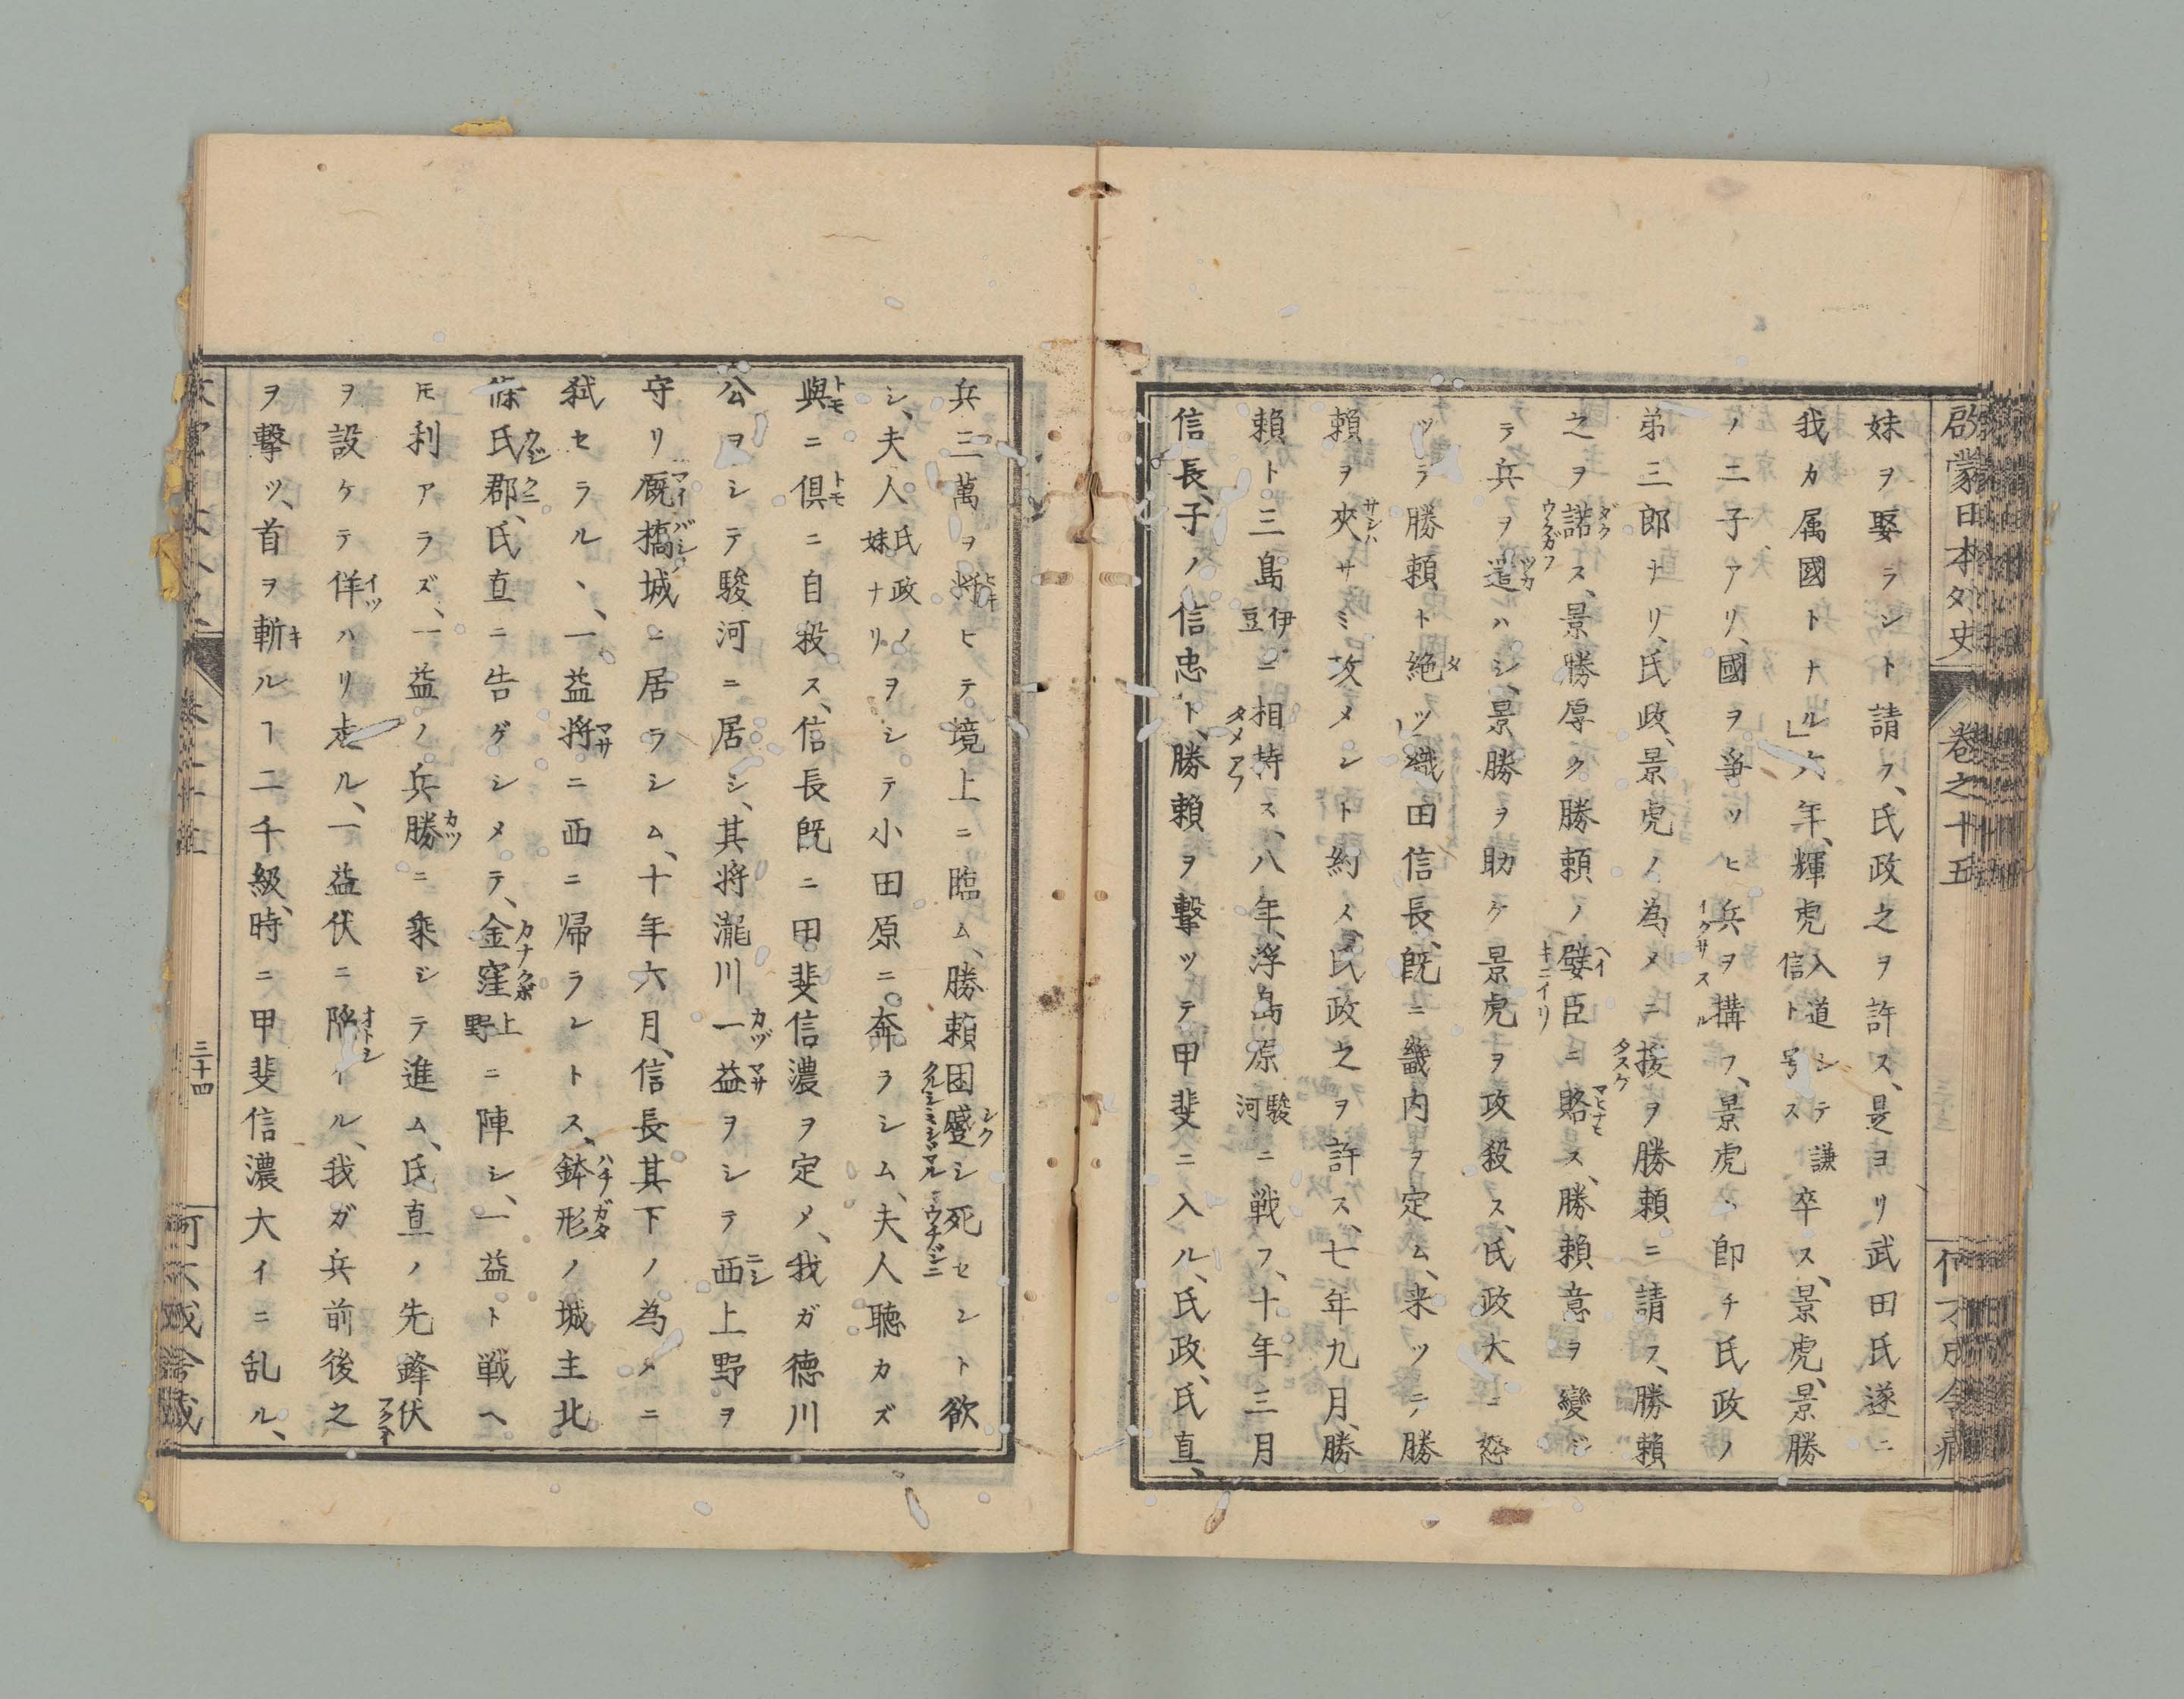 啟蒙日本外史
卷之十五
妹ヲ娶ラシト請フ、氏政之ヲ許ス、是ヨリ武田氏遂ニ
我カ属國トナル」六年、輝虎入道シテ謙信ト号ス卒ス、景虎、景勝
ノ二子アリ、國ヲ爭ツヒ兵ヲ構フ、景虎ハ即チ氏政ノ
弟三郎ナリ、氏政、景虎ノ為メニ援ヲ勝賴ニ請フ、勝賴
之ヲ諾ス、景勝厚ク勝賴ノ嬖臣ニ賂ス、勝賴意ヲ變ジ
ラ兵ヲ遣ハシ、景勝ヲ助ケ景虎ヲ攻殺ス、氏政大ニ怒
ツラ勝賴ト絶ツ」織田信長、既ニ畿内ヲ定ム、来ツテ勝
賴ヲ夾サミ攻メント約ス、氏政之ヲ許ス、七年九月、勝
賴ト三島伊豆ニ相持ス、八年、浮島原駿河ニ戦フ、十年三月
信長、子ノ信忠ト、勝賴ヲ撃ツテ甲斐ニ入ル、氏政、氏直、
兵三萬ヲ将ヒテ境上ニ臨ム、勝賴困蹙シ死セント欲
シ、夫人氏政ノ妹ナリヲシテ小田原ニ奔ラシム、夫人聴カズ
與ニ倶ニ自殺ス、信長既ニ甲斐信濃ヲ定メ、我ガ德川
公ヲシテ駿河ニ居シ、其将瀧川一益ヲシテ西上野ヲ
守リ厩橋城ニ居ラシム、十年六月、信長其下ノ為メニ
弑セラル、一益将ニ西ニ帰ラントス、鉢形ノ城主北
條氏郡、氏直ニ告ゲシメテ、金窪上野ニ陣シ、一益ト戦ヘ
𪜈利アラズ、一益ノ兵勝ニ乘シテ進ム、氏直ノ先鋒伏
ヲ設ケテ佯ハリ走ル、一益伏ニ陥イル、我ガ兵前後之
ヲ擊ツ、首ヲ斬ルヿ二千級、時ニ甲斐信濃大イニ乱ル、
三十四